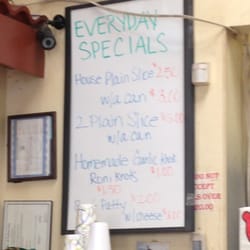 EVERYDAY
SPECIALS
House Plain Slice $2.50
w/a can $3.00
2 Plain Slice $5.00
w/a can
Homemade Garlic Knots
Roni Knots $1.00
$1.50
Patty $2.00
w/cheese
NOT
CCEPT
LS OVER